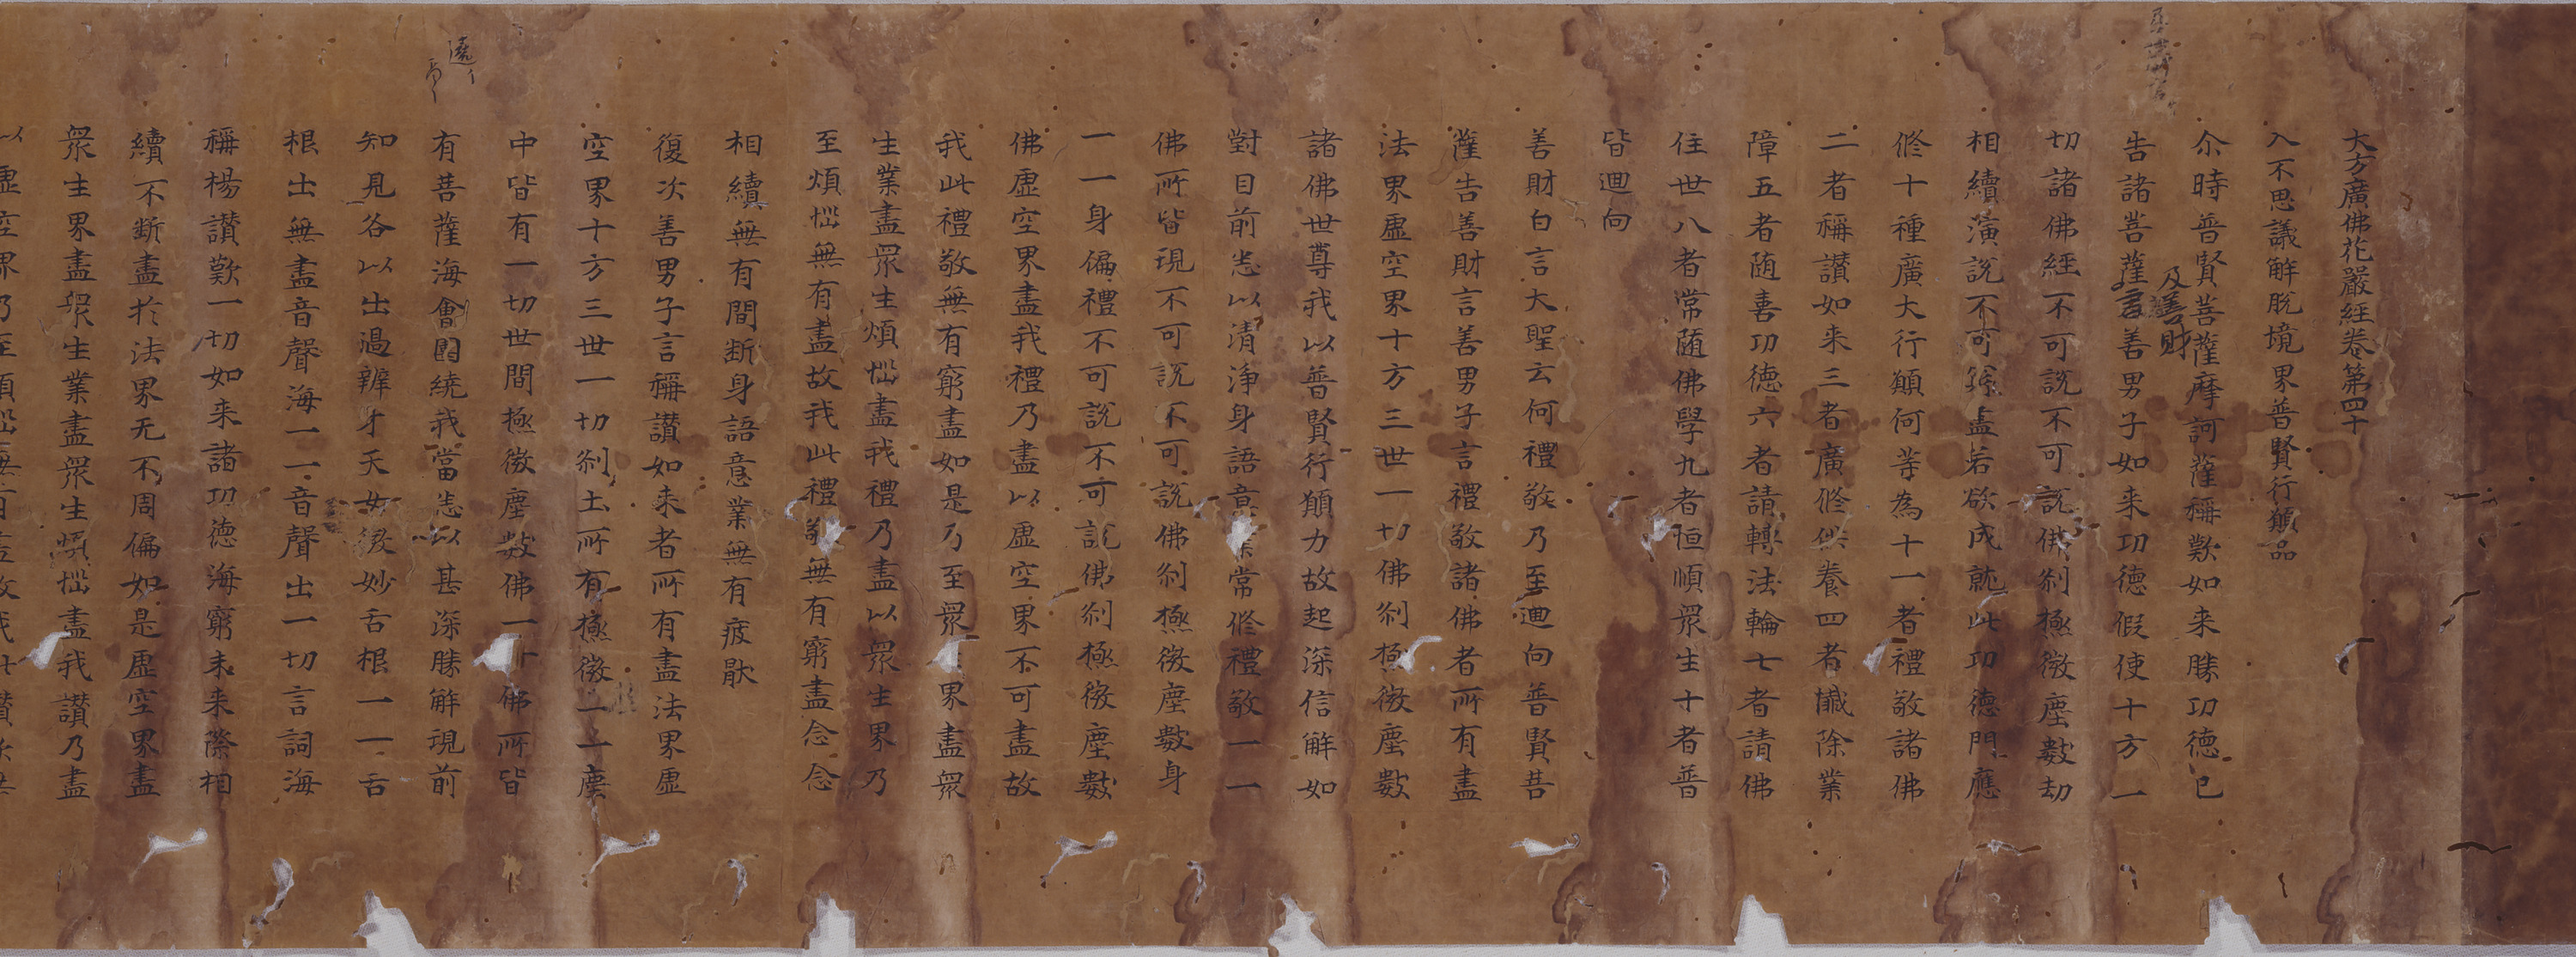 大方廣佛花嚴經卷第四十
入不思議解脫境界普賢行願品
尒時普賢菩薩摩訶薩稱歎如来勝功德已
及善財
告諸菩薩言善男子如来功德假使十方一
切諸佛經不可說不可說佛刹極微塵數劫
相續演說不可窮盡若欲成就此功德門應
修十種廣大行願何等為十一者禮敬諸佛
二者稱讃如来三者廣修供養四者懺除業
障五者随喜功德六者請轉法輪七者請佛
住世八者常随佛學九者恒順衆生十者普
皆迴向
善財白言大聖云何禮敬乃至迴向普賢菩
薩告善財言善男子言禮敬諸佛者所有盡
法界虛空界十方三世一切佛刹極微塵數
諸佛世尊我以普賢行願力故起深信解如
對目前悉以清淨身語意業常修禮敬一一
佛所皆現不可說不可說佛刹極微塵數身
一一身徧禮不可說不可說佛刹極微塵數
佛虛空界盡我禮乃盡以虛空界不可盡故
我此禮敬無有窮盡如是乃至衆生界盡衆
生業盡衆生煩惱盡我禮乃盡以衆生界乃
至煩惱無有盡故我此禮敬無有窮盡念念
相續無有間斷身語意業無有疲猒
復次善男子言稱讃如来者所有盡法界虛
空界十方三世一切刹土所有極微一一塵
中皆有一切世間極微塵數佛一一佛所皆
有菩薩海會圍繞我當悉以甚深勝解現前
知見各以出過辯才天女微妙舌根一一舌
根出無盡音聲海一一音聲出一切言詞海
稱揚讃歎一切如来諸功德海窮未来際相
續不斷盡於法界无不周徧如是虛空界盡
衆生界盡衆生業盡衆生煩惱盡我讃乃盡